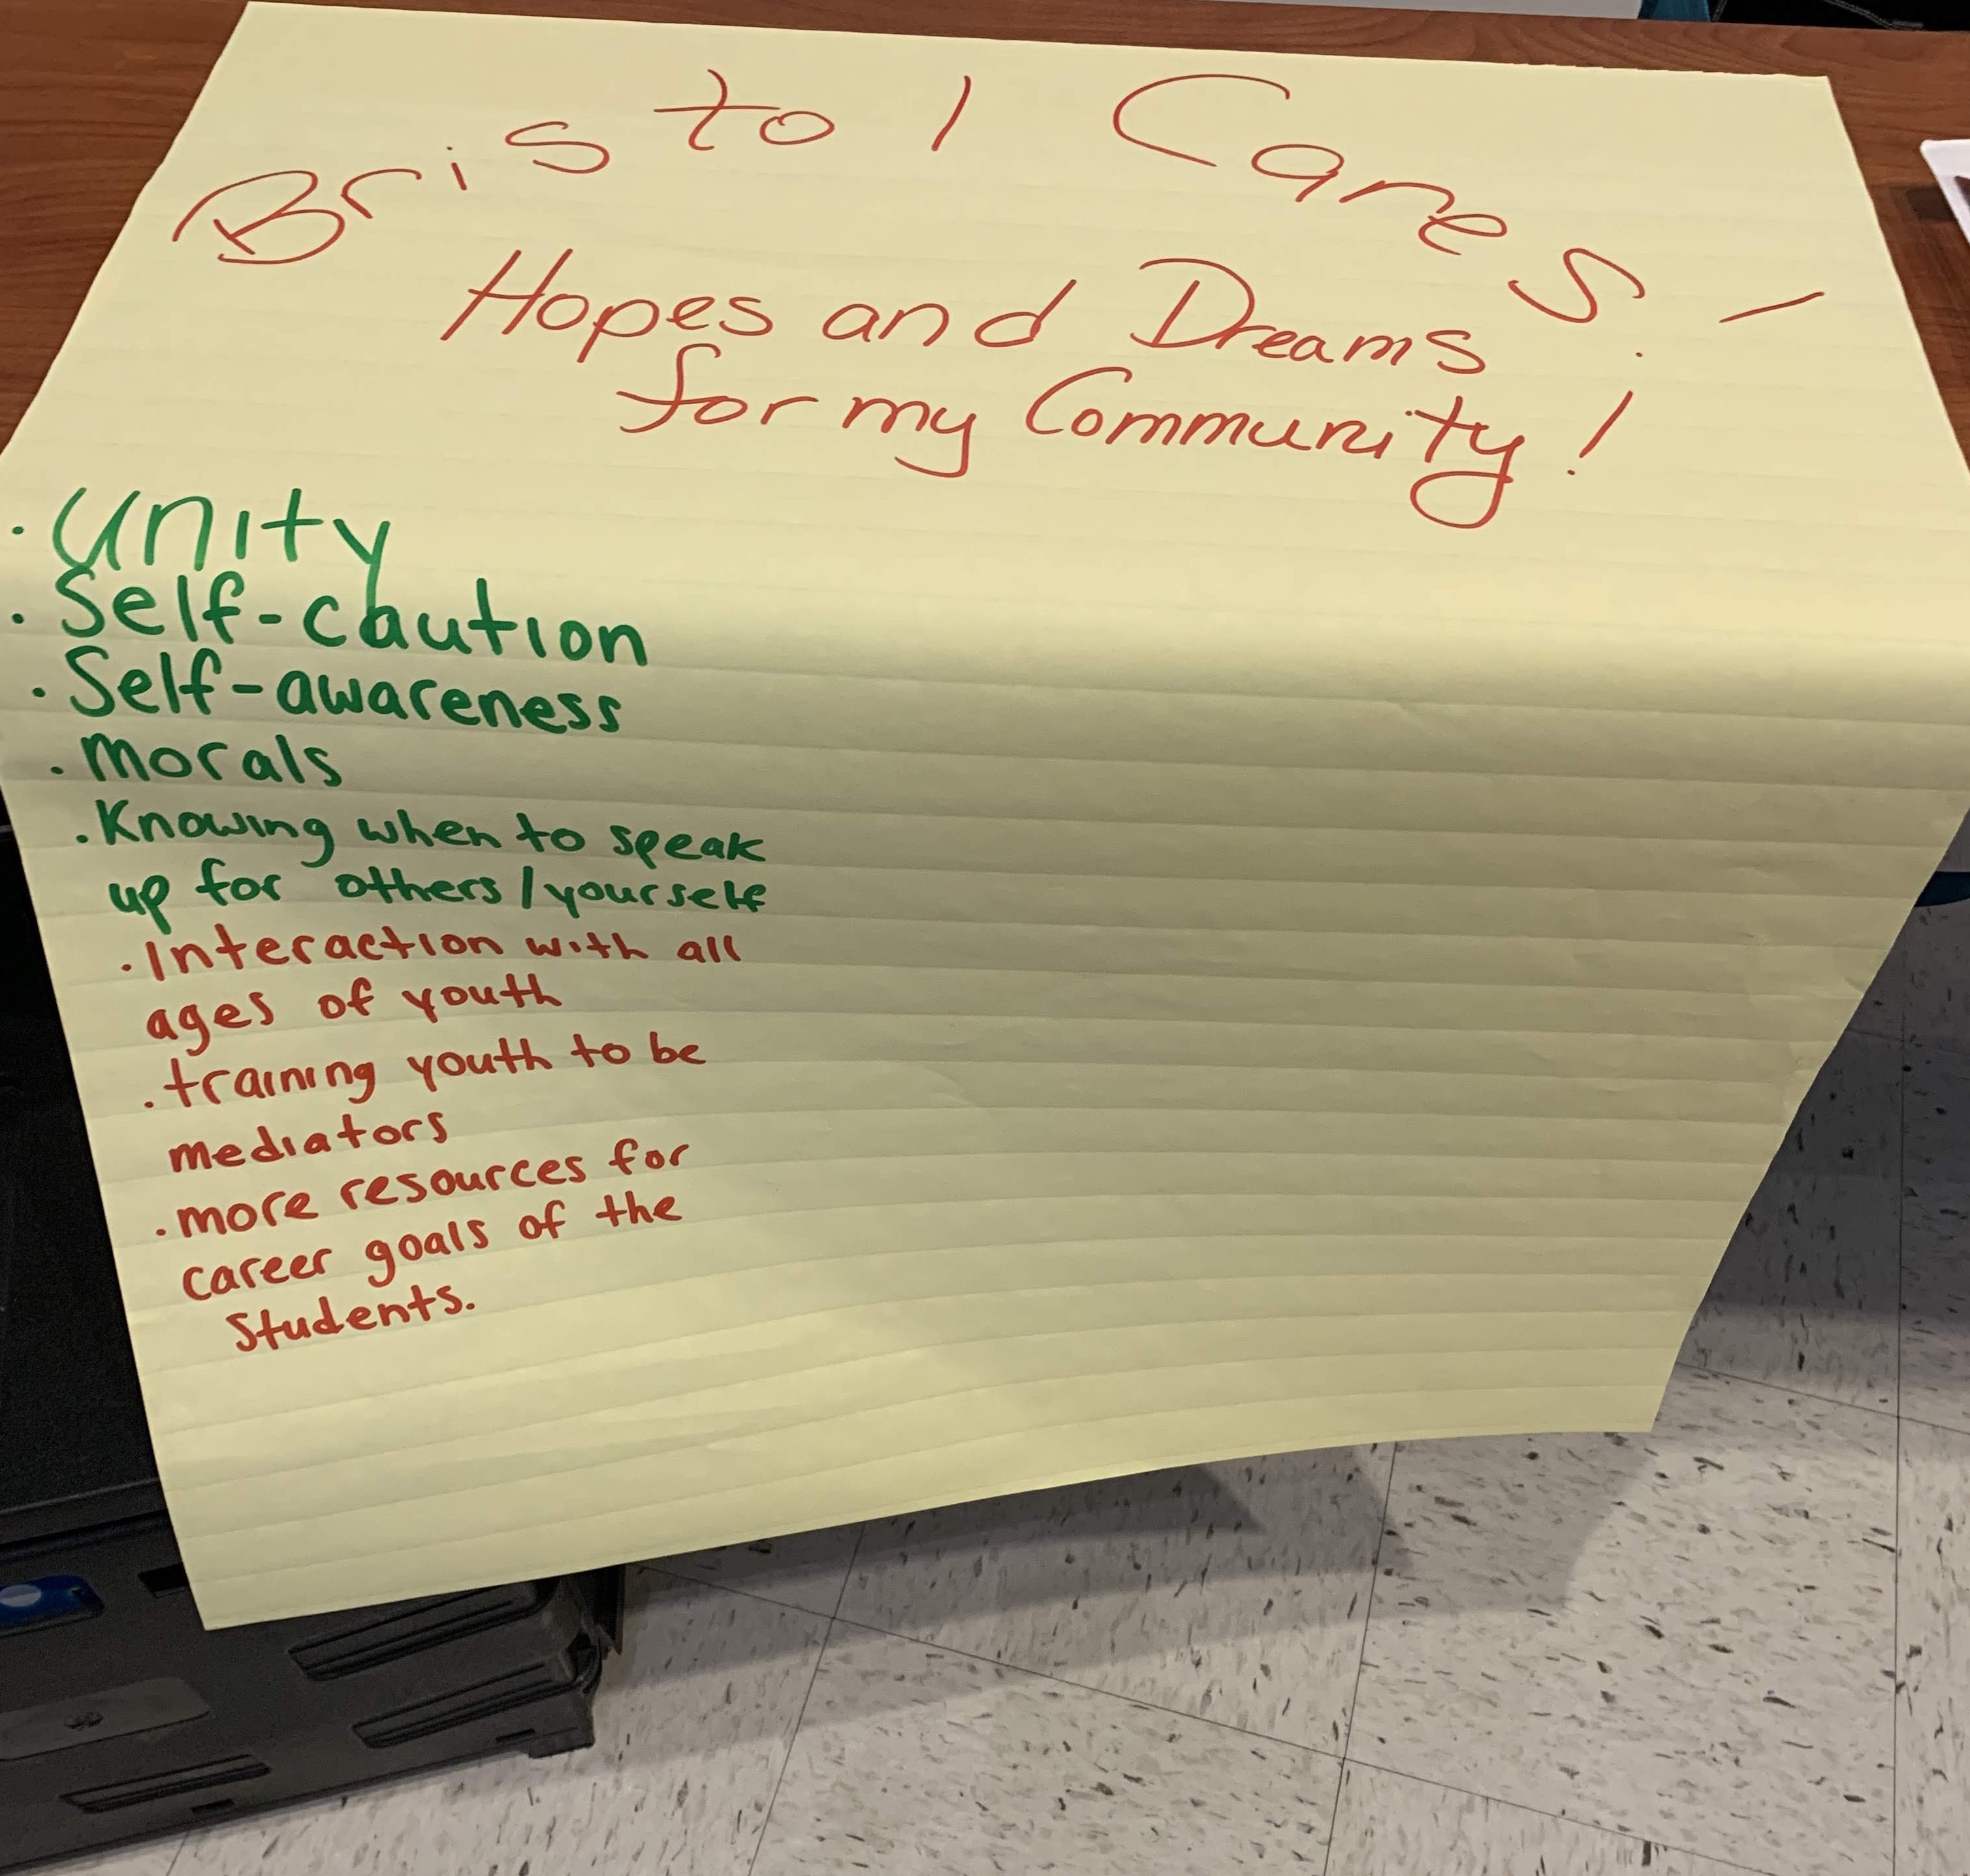 Bristol Cares!
Hopes and Dreams
for my Community!
· Unity
· Self-caution
· Self-awareness
· morals
· Knowing when to speak
up for others/yourself
· Interaction with all
ages of youth
· training youth to be
mediators
· more resources for
career goals of the
students.